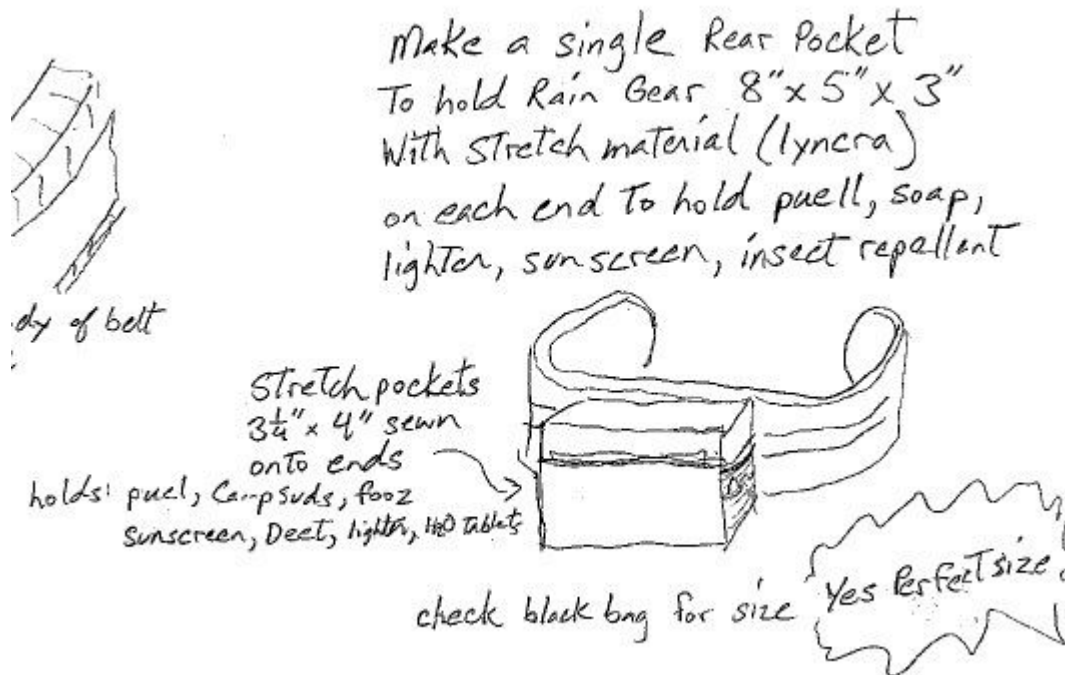 Make a single Rear Pocket
To hold Rain Gear 8" x 5" x 3"
With stretch material (lyncra)
on each end To hold puell, soap,
lighter, sunscreen, insect repellent
dy of belt
Stretch pockets
3¼" x 4" sewn
onto ends
holds: puel, CampSuds, fooz
sunscreen, Deet, lighter, H2O Tablets
check black bag for size
Yes Perfect size